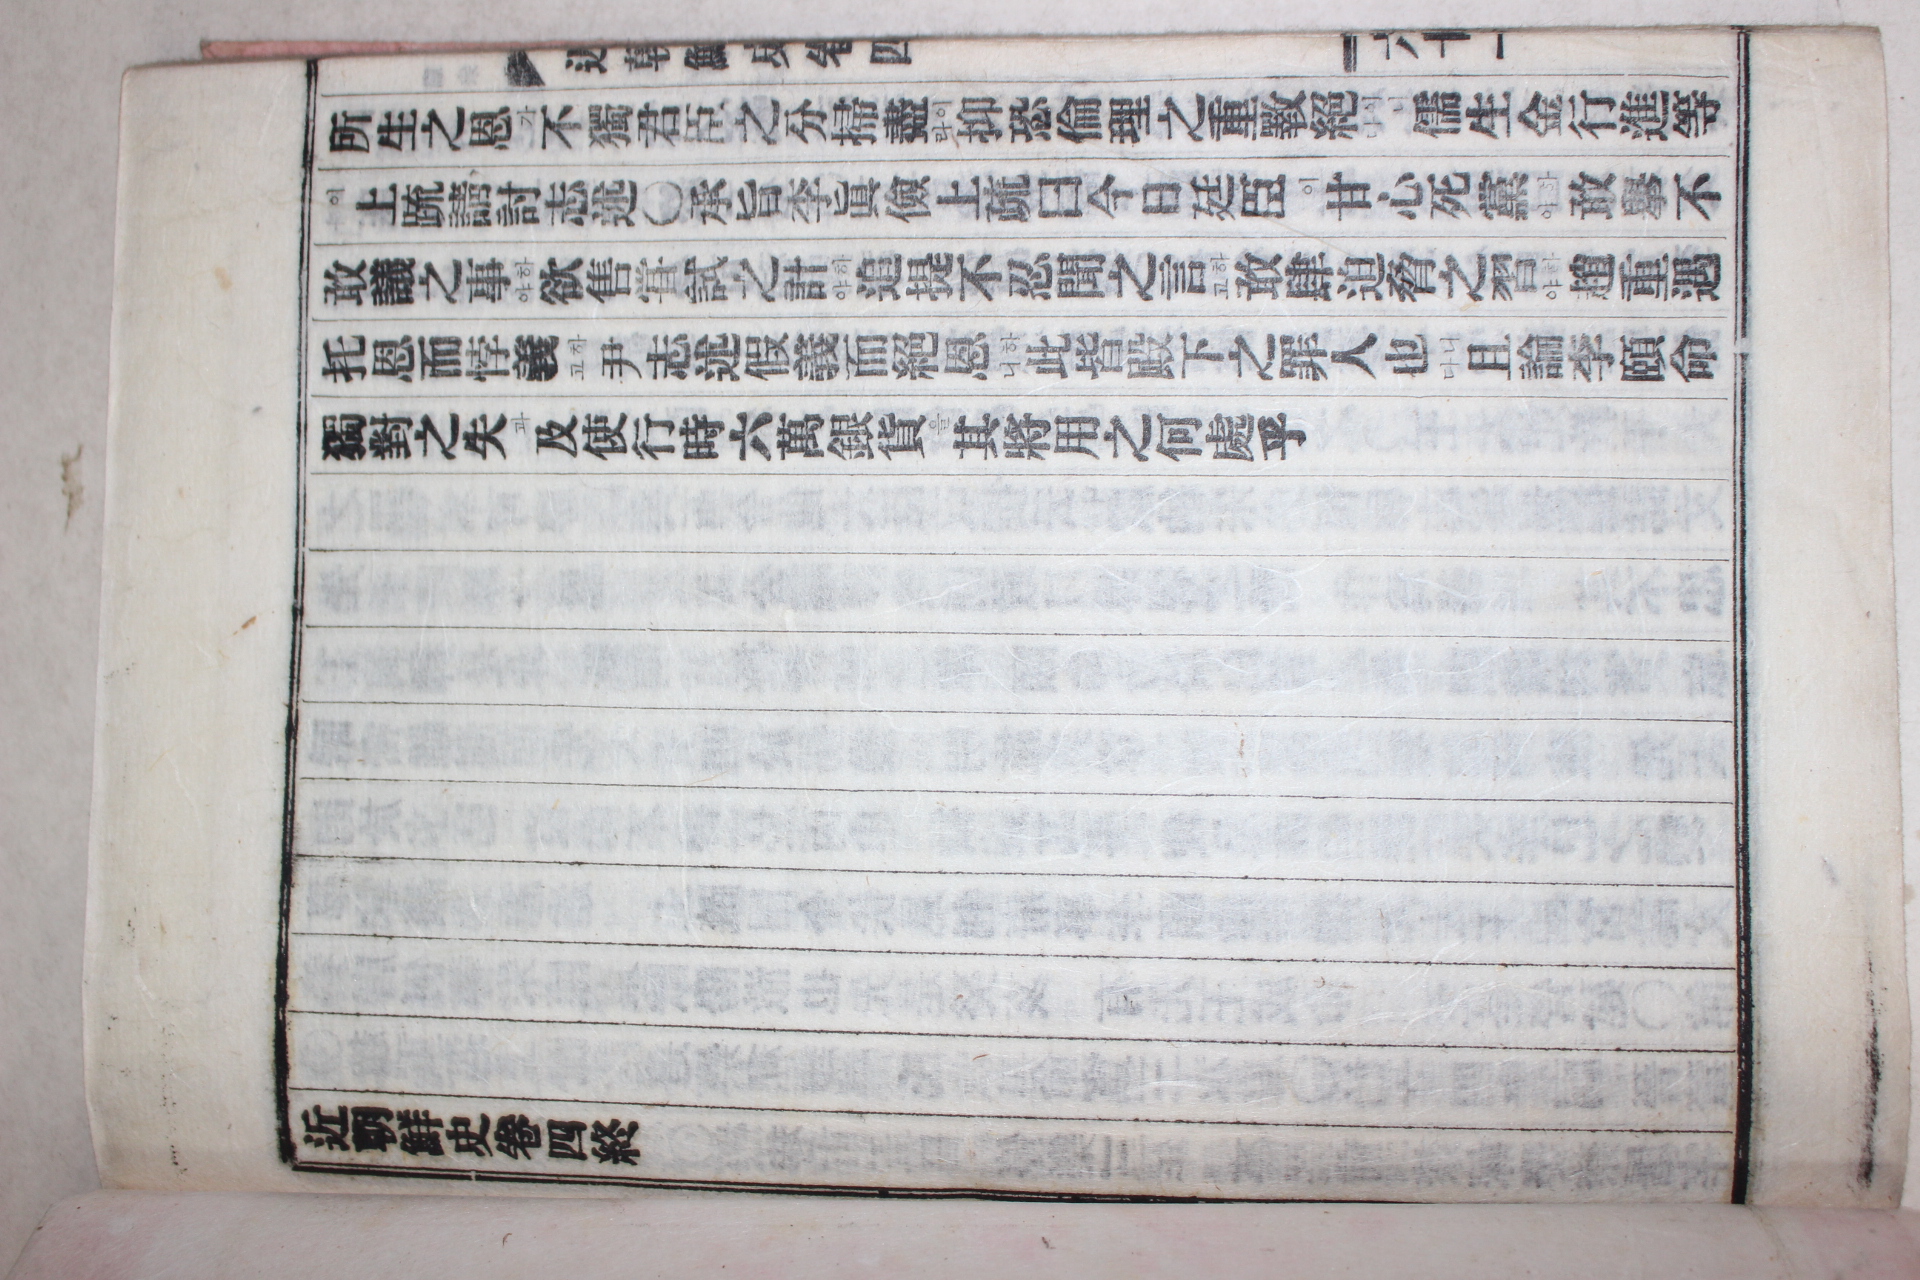 近朝鮮史卷四
六十一
所生之恩가不獨君臣之分掃盡이라抑恐倫理之重斁絕이니다儒生金行進等
이上疏請討志述〇承旨李眞儉上疏曰今日廷臣이甘心死黨하야敢擧不
敢議之事하야欲售嘗試之計하야追提不忍聞之言하고敢肆迫脅之習하야趙重遇
托恩而悖義하고尹志述假義而絕恩하니此皆殿下之罪人也니다且論李頤命
獨對之失과及使行時六萬銀貨을其將用之何處乎
近朝鮮史卷四終